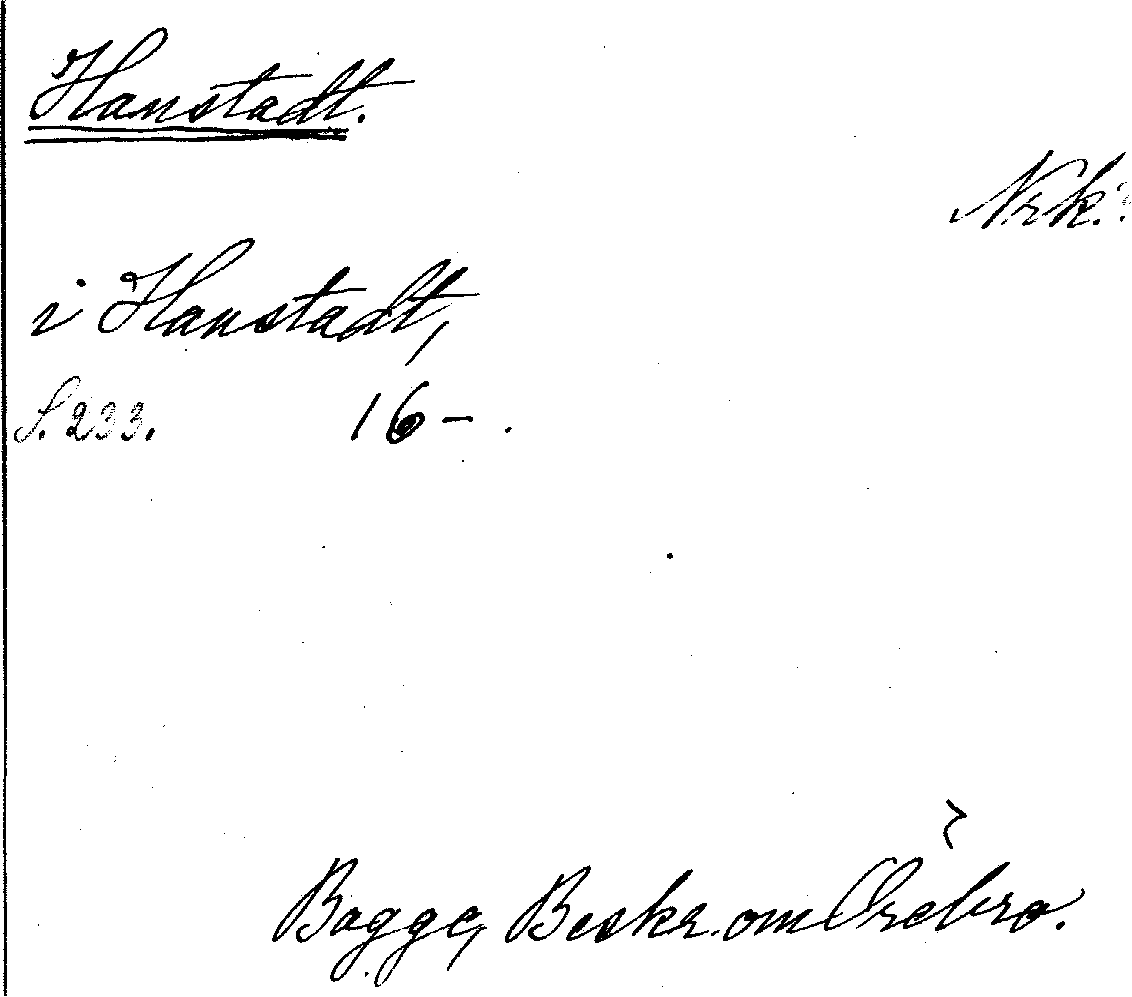 Hanstadt.
Nrk.?
i Hanstadt,
S. 233. 16- .
Bagge, Beskr. om Örebro.